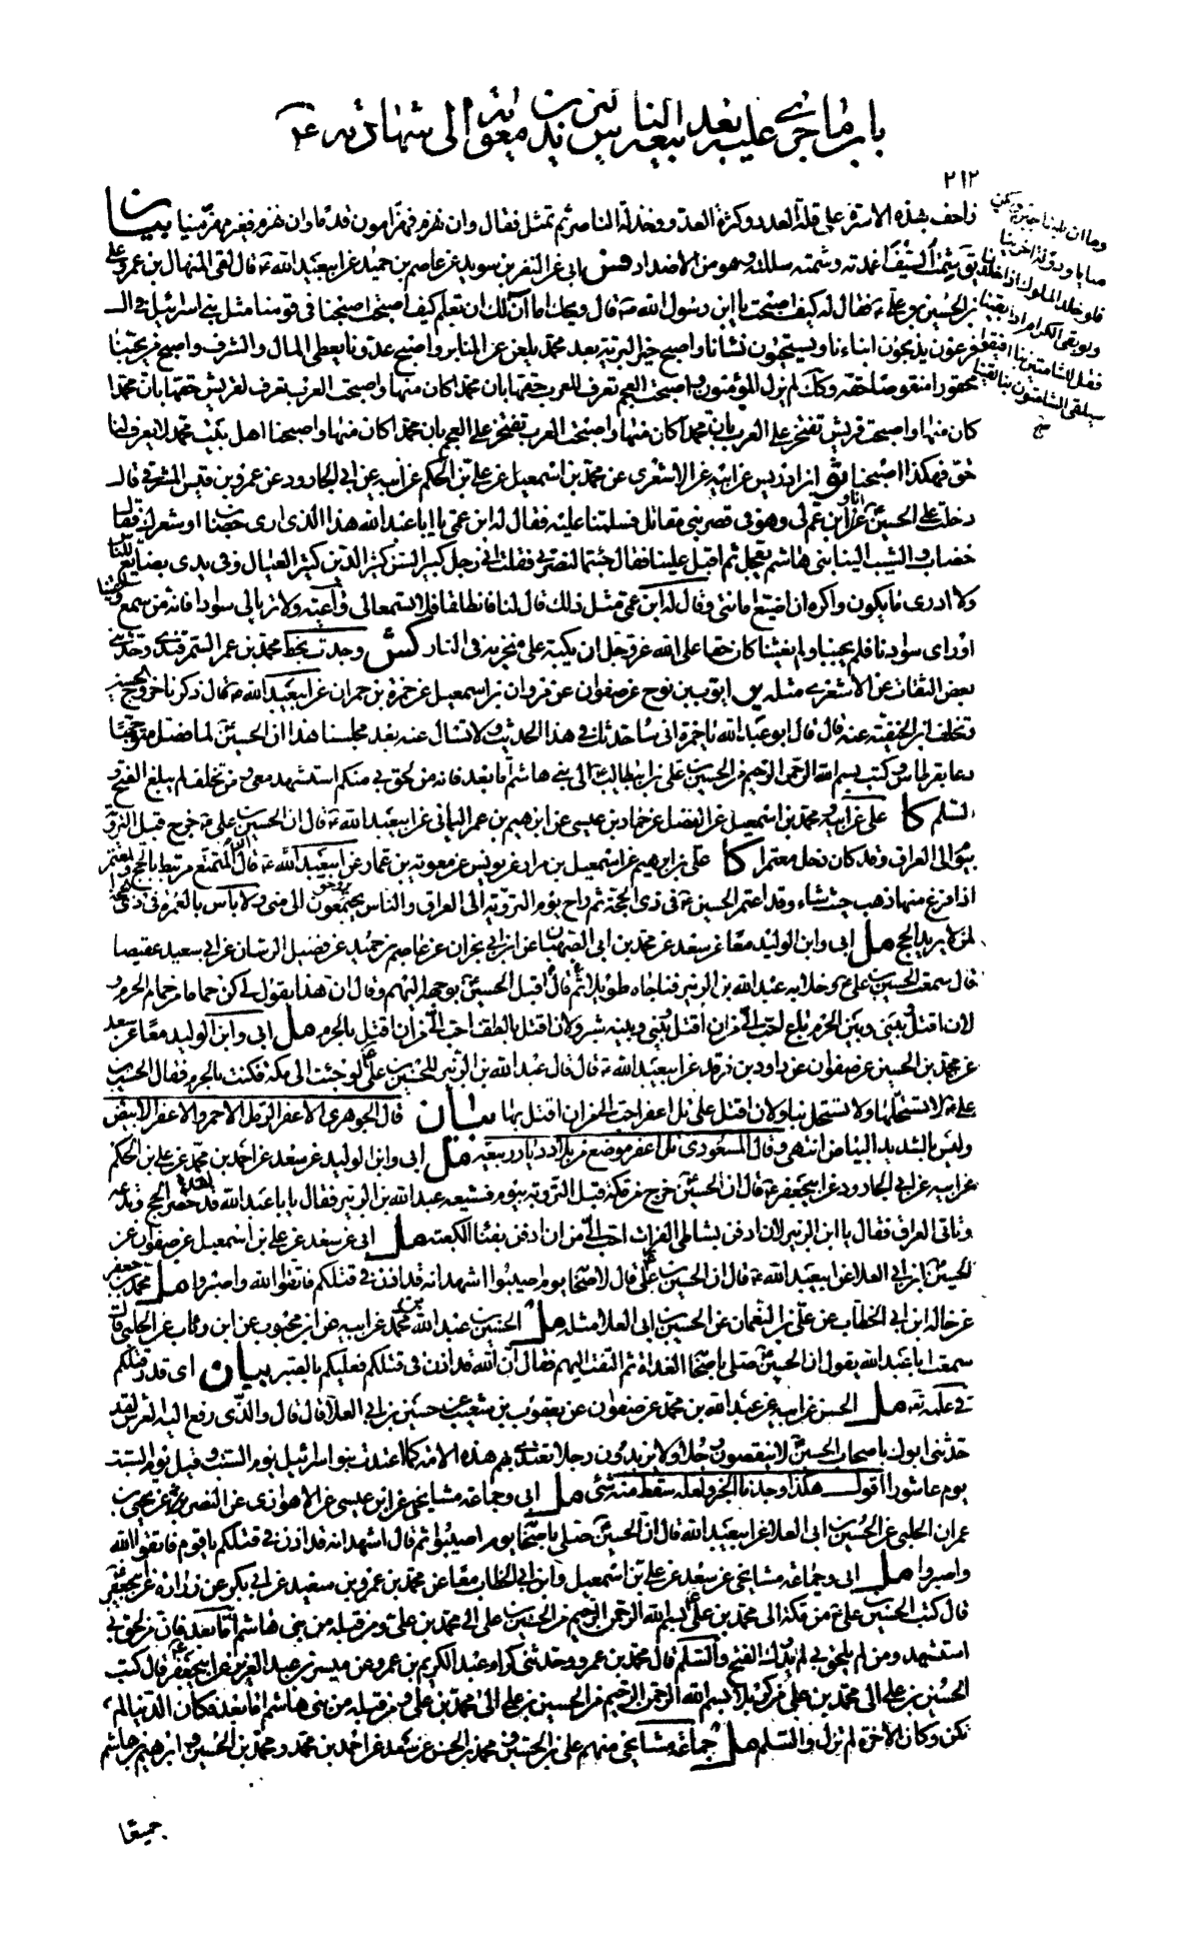 باب ما جرى عليه بعد بيعة الناس ليزيد بن معوية الى شهادته ع
٢١٢
زاحف بهذه الاسرة على قلة العدد وكثرة العدو وخذلة الناصر ثم تمثل فقال وان نهزم فهزامون قدما وان نهزم فغير مهزمينا بيان
وما ان طبنا جبن ولكن
منايانا ودولة اخرينا
فلو خلد الملوك اذا خلدنا
ولو بقى الكرام اذا بقينا
فقل للشامتين بنا افيقوا
سيلقى الشامتون بما لقينا
صح
يق شمت السيف اغمدته وشمته سللته وهو من الاضداد فس ابى عن النضر بن سويد عن عاصم بن حميد عن ابيعبد الله ع قال لقى المنهال بن عمرو على
بن الحسين بن على ع فقال له كيف اصبحت يا ابن رسول الله ص قال ويحك اما آن لك ان تعلم كيف اصبحت اصبحنا فى قومنا مثل بنى اسرئيل فى ال
فرعون يذبحون ابناءنا ويستحيون نساءنا واصبح خير البرية بعد محمد يلعن على المنابر واصبح عدونا يعطى المال والشرف واصبح من يحبنا
محقورا منقوصا حقه وكذلك لم يزل المؤمنون واصبحت العجم تعرف للعرب حقها بان محمدا كان منها واصبحت العرب تعرف لقريش حقها بان محمدا
كان منها واصبحت قريش تفتخر على العرب بان محمدا كان منها واصبحت العرب تفتخر على العجم بان محمدا كان منها واصبحنا اهل بيت محمد لا يعرف لنا
حق فهكذا اصبحنا ثو ابن ادريس عن ابيه عن الاشعرى عن محمد بن اسمعيل عن على بن الحكم عن ابيه عن ابى الجارود عن عمرو بن قيس المشرقى قال
دخلت على الحسين ع انا وابن عم لى وهو فى قصر بنى مقاتل فسلمنا عليه فقال له ابن عمى يا ابا عبد الله هذا الذى ارى خضاب او شعرك فقال
خضاب والشيب الينا بنى هاشم يعجل ثم اقبل علينا فقال جئتما لنصرتى فقلت انى رجل كبير السن كثير الدين كثير العيال وفى يدى بضايع للناس
ولا ادرى ما يكون واكره ان اضيع امانتى وقال له ابن عمى مثل ذلك قال لنا فانطلقا فلا تسمعا لى واعية ولا تريا لى سوادا فانه من سمع واعيتنا
او راى سوادنا فلم يجبنا ولم يغثنا كان حقا على الله عز وجل ان يكبه على منخريه فى النار كش وجدت بخط محمد بن عمر السمرقندى وحدثنى
بعض الثقات عن الاشعرى مثله ير ايوب بن نوح عن صفوان عن مروان بن اسمعيل عن حمزة بن حمران عن ابيعبد الله ع قال ذكرنا خروج الحسين
وتخلف ابن الحنفية عنه قال قال ابو عبد الله يا حمزة انى ساحدثك فى هذا الحديث ولا تسال عنه بعد مجلسنا هذا ان الحسين لما فصل متوجها
دعا بقرطاس وكتب بسم الله الرحمن الرحيم من الحسين بن على بن ابيطالب الى بنى هاشم اما بعد فانه من لحق بى منكم استشهد معى ومن تخلف لم يبلغ الفتح و
السلم كا على عن ابيه ومحمد بن اسمعيل عن الفضل عن حماد بن عيسى عن ابرهيم بن عمر اليمانى عن ابيعبد الله ع قال ان الحسين بن على ع خرج قبل التروية
بيوم الى العراق وقد كان دخل معتمرا كا على بن ابرهيم عن اسمعيل بن مرار عن يونس عن معوية بن عمار عن ابيعبد الله ع قال ان المتمتع مرتبط بالحج والمعتمر
اذا فرغ منها ذهب حيث شاء وقد اعتمر الحسين ع فى ذى الحجة ثم راح يوم التروية الى العراق والناس يروحون الى منى ولا باس بالعمرة فى ذى الحجة
لمن لا يريد الحج مل ابى وابن الوليد معا عن سعد عن محمد بن ابى الصهبان عن ابن ابى نجران عن عاصم بن حميد عن فضيل الرسان عن ابى سعيد عقيصا
قال سمعت الحسين بن على ع وخلا به عبد الله بن الزبير فناجاه طويلا ثم قال اقبل الحسين بوجهه اليهم وقال ان هذا يقول لى كن حماما من حمام الحرم و
لان اقتل وبينى وبين الحرم باع احب الى من ان اقتل وبينى وبينه شبر ولان اقتل بالطف احب الى من ان اقتل بالحرم مل ابى وابن الوليد معا عن سعد
عن محمد بن الحسين عن صفوان عن داود بن فرقد عن ابيعبد الله ع قال قال عبد الله بن الزبير للحسين بن على ع لو جئت الى مكة فكنت بالحرم فقال الحسين بن
على ع لا نستحلها ولا تستحل بنا ولان اقتل على تل اعفر احب الى من ان اقتل بها بيان قال الجوهرى الاعفر الرمل الاحمر والاعفر الابيض
وليس بالشديد البياض انتهى وقال المسعودى تل اعفر موضع من بلاد ديار ربيعة مل ابى وابن الوليد عن سعد عن احمد بن محمد عن على بن الحكم
عن ابيه عن ابى الجارود عن ابيجعفر ع قال ان الحسين خرج من مكة قبل التروية بيوم فشيعه عبد الله بن الزبير فقال يا با عبد الله قد حضر الحج وتدعه
وتاتى العراق فقال يا ابن الزبير لان ادفن بشاطئ الفرات احب الى من ان ادفن بفناء الكعبة مل ابى عن سعد عن على بن اسمعيل عن صفوان عن
الحسين بن ابى العلا عن ابيعبد الله ع قال ان الحسين بن على ع قال لاصحابه يوم اصيبوا اشهد انه قد اذن فى قتلكم فاتقوا الله واصبروا مل محمد بن جعفر
عن خاله ابن ابى الخطاب عن على بن النعمان عن الحسين بن ابى العلا مثله مل الحسن بن عبد الله بن محمد عن ابيه عن ابن محبوب عن ابن رئاب عن الحلبى قال
سمعت ابا عبد الله يقول ان الحسين ع صلى باصحابه الغداة ثم التفت اليهم فقال ان الله قد اذن فى قتلكم فعليكم بالصبر بيان اى قدر قتلكم
فى علمه تع مل الحسن عن ابيه عن عبد الله بن محمد عن صفوان عن يعقوب بن شعيب عن حسين بن ابى العلا قال قال والذى رفع اليه العرش لقد
حدثنى ابوك باصحاب الحسين لا ينقصون رجلا ولا يزيدون رجلا تعتدى بهم هذه الامة كما اعتدت بنو اسرائيل يوم السبت وقتل يوم السبت
يوم عاشورا اقول هكذا وجدنا الخبر ولعله سقط منه شئ مل ابى وجماعة مشايخى عن ابن عيسى عن الاهوازى عن النضر عن يحيى بن
عمران الحلبى عن الحسين بن ابى العلا عن ابيعبد الله قال ان الحسين صلى باصحابه يوم اصيبوا ثم قال اشهد انه قد اذن فى قتلكم يا قوم فاتقوا الله
واصبروا مل ابى وجماعة مشايخى عن سعد عن على بن اسمعيل وابن ابى الخطاب معا عن محمد بن عمرو بن سعيد عن ابى بكير عن زرارة عن ابيجعفر
قال كتب الحسين بن على ع من مكة الى محمد بن على بسم الله الرحمن الرحيم من الحسين بن على الى محمد بن على ومن قبله من بنى هاشم اما بعد فان من لحق بى
استشهد ومن لم يلحق بى لم يدرك الفتح والسلم قال محمد بن عمرو وحدثنى كرام عبد الكريم بن عمرو عن ميسر بن عبد العزيز عن ابيجعفر ع قال كتب
الحسين بن على الى محمد بن على من كربلا بسم الله الرحمن الرحيم من الحسين بن على الى محمد بن على ومن قبله من بنى هاشم اما بعد فكان الدنيا لم
تكن وكان الاخرة لم تزل والسلم مل جماعة مشايخى منهم على بن الحسين ومحمد بن الحسن عن سعد عن احمد بن محمد ومحمد بن الحسين وابرهيم بن هاشم
جميعا